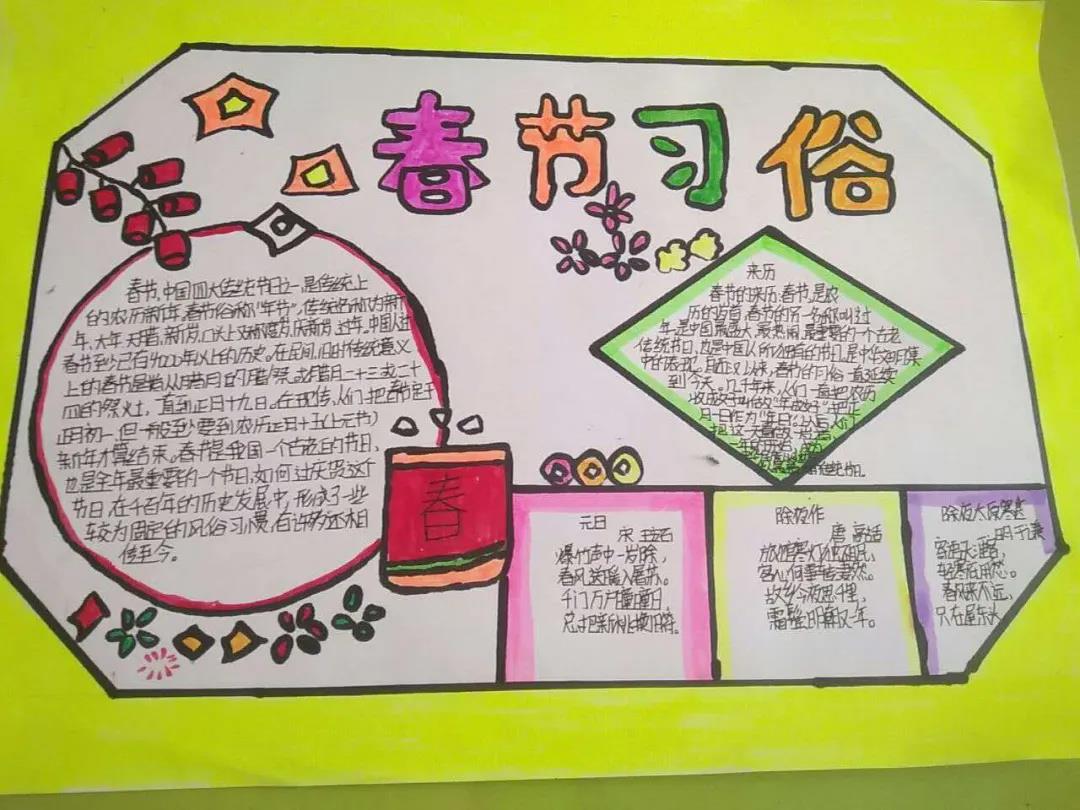 春节习俗
春节,中国四大传统节日之一,是传统上
的农历新年。春节俗称"年节",传统名称为新
年、大年、天腊、新岁,口头上又称度岁、庆新岁、过年。中国人过
春节至少已有4000年以上的历史。在民间,旧时传统意义
上的春节是指从腊月的腊祭或腊月二十三或二十
四的祭灶,一直到正月十九日。在现代,人们把春节定于
正月初一,但一般至少要到农历正月十五(上元节)
新年才算结束。春节是我国一个古老的节日,
也是全年最重要的一个节日,如何过庆贺这个
节日,在千百年的历史发展中,形成了一些
较为固定的风俗习惯,有许多还相
传至今。
春
来历
春节的来历:春节,是农
历的岁首,春节的另一名称叫过
年,是中国最盛大、最热闹、最重要的一个古老
传统节日,也是中国人所独有的节日。是中华文明集
中的表现。自西汉以来,春节的习俗一直延续
到今天。几千年来,人们
元日
宋 王安石
爆竹声中一岁除,
春风送暖入屠苏。
千门万户曈曈日,
总把新桃换旧符。
除夜作
唐 高适
旅馆寒灯独不眠,
客心何事转凄然。
故乡今夜思千里,
霜鬓明朝又一年。
除夜太原寒甚
明 于谦
寄语天涯客,
轻寒底用愁。
春风来不远,
只在屋东头